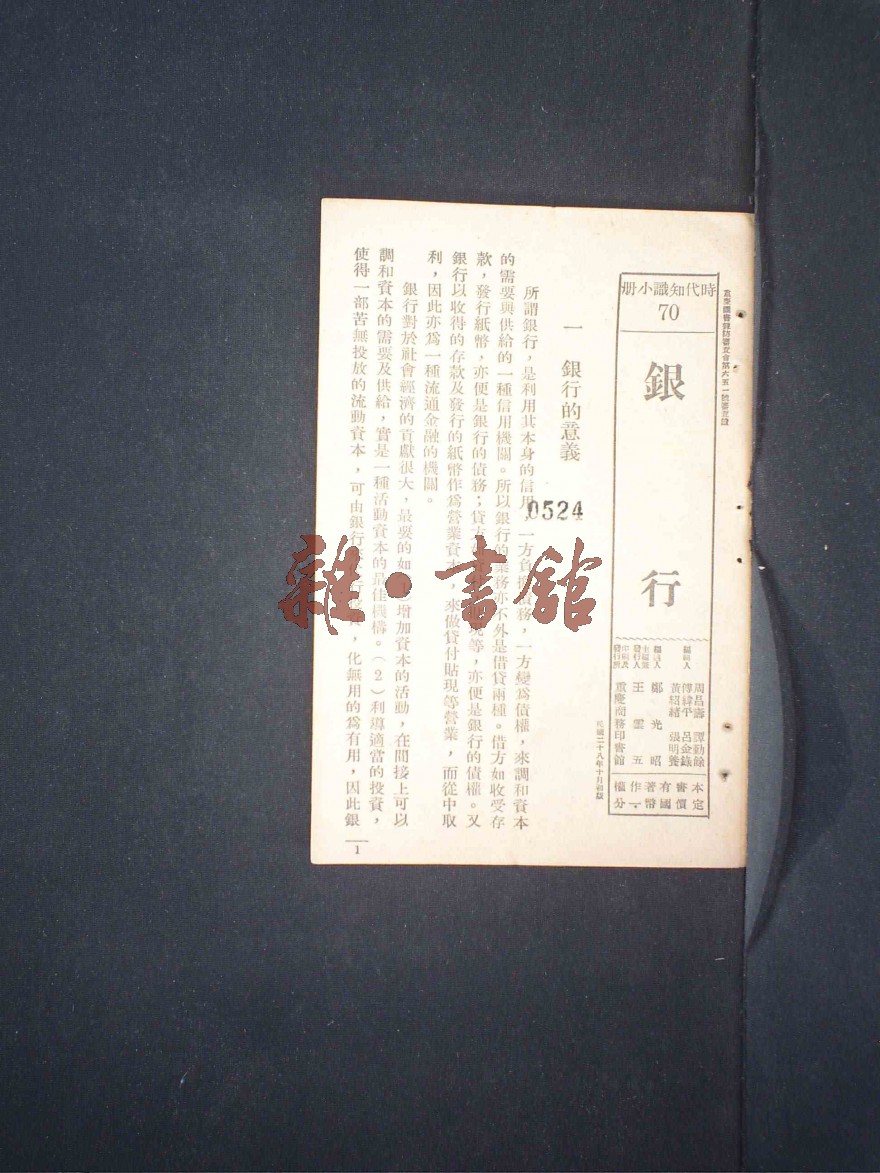 時代知識小册
70
銀行
編輯人
周昌壽 譚勤餘
傅緯平 呂金錄
黃紹緒 張明養
鄭光昭
發行人 王雲五
發行所 重慶商務印書館
本書有著作權
定價國幣一分
民國二十八年十月初版
一 銀行的意義
所謂銀行，是利用其本身的信用，一方負債務，一方變爲債權，來調和資本
的需要與供給的一種信用機關。所以銀行的業務亦不外是借貸兩種。借方如收受存
款，發行紙幣，亦便是銀行的債務；貸方現等，亦便是銀行的債權。又
銀行以收得的存款及發行的紙幣作爲營業資本，來做貸付貼現等營業，而從中取
利，因此亦爲一種流通金融的機關。
銀行對於社會經濟的貢獻很大，最要的如增加資本的活動，在間接上可以
調和資本的需要及供給，實是一種活動資本的最佳機構。（2）利導適當的投資，
使得一部苦無投放的流動資本，可由銀行，化無用的爲有用，因此銀
1
0524
雜·書館